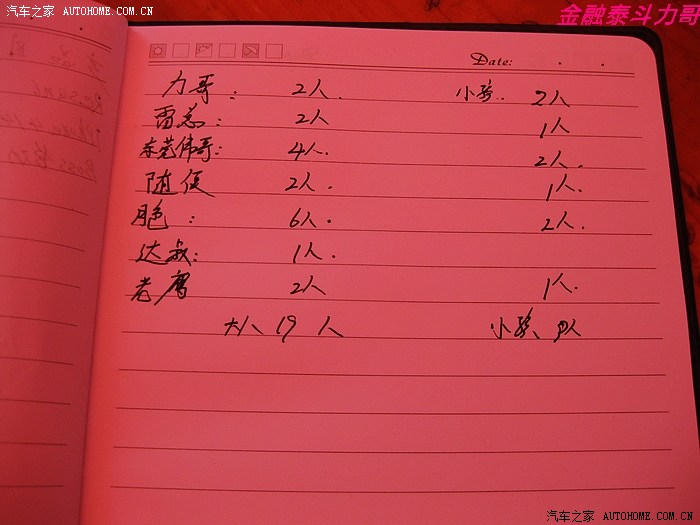 汽车之家 AUTOHOME.COM.CN
金融泰斗力哥
Date:
力哥: 2人. 小孩. 2人
雷总: 2人 1人
东莞伟哥: 4人. 2人.
随便 2人. 1人.
月色: 6人. 2人.
达叔: 1人.
老鹰 2人 1人.
大人 19 人 小孩 9人
汽车之家 AUTOHOME.COM.CN